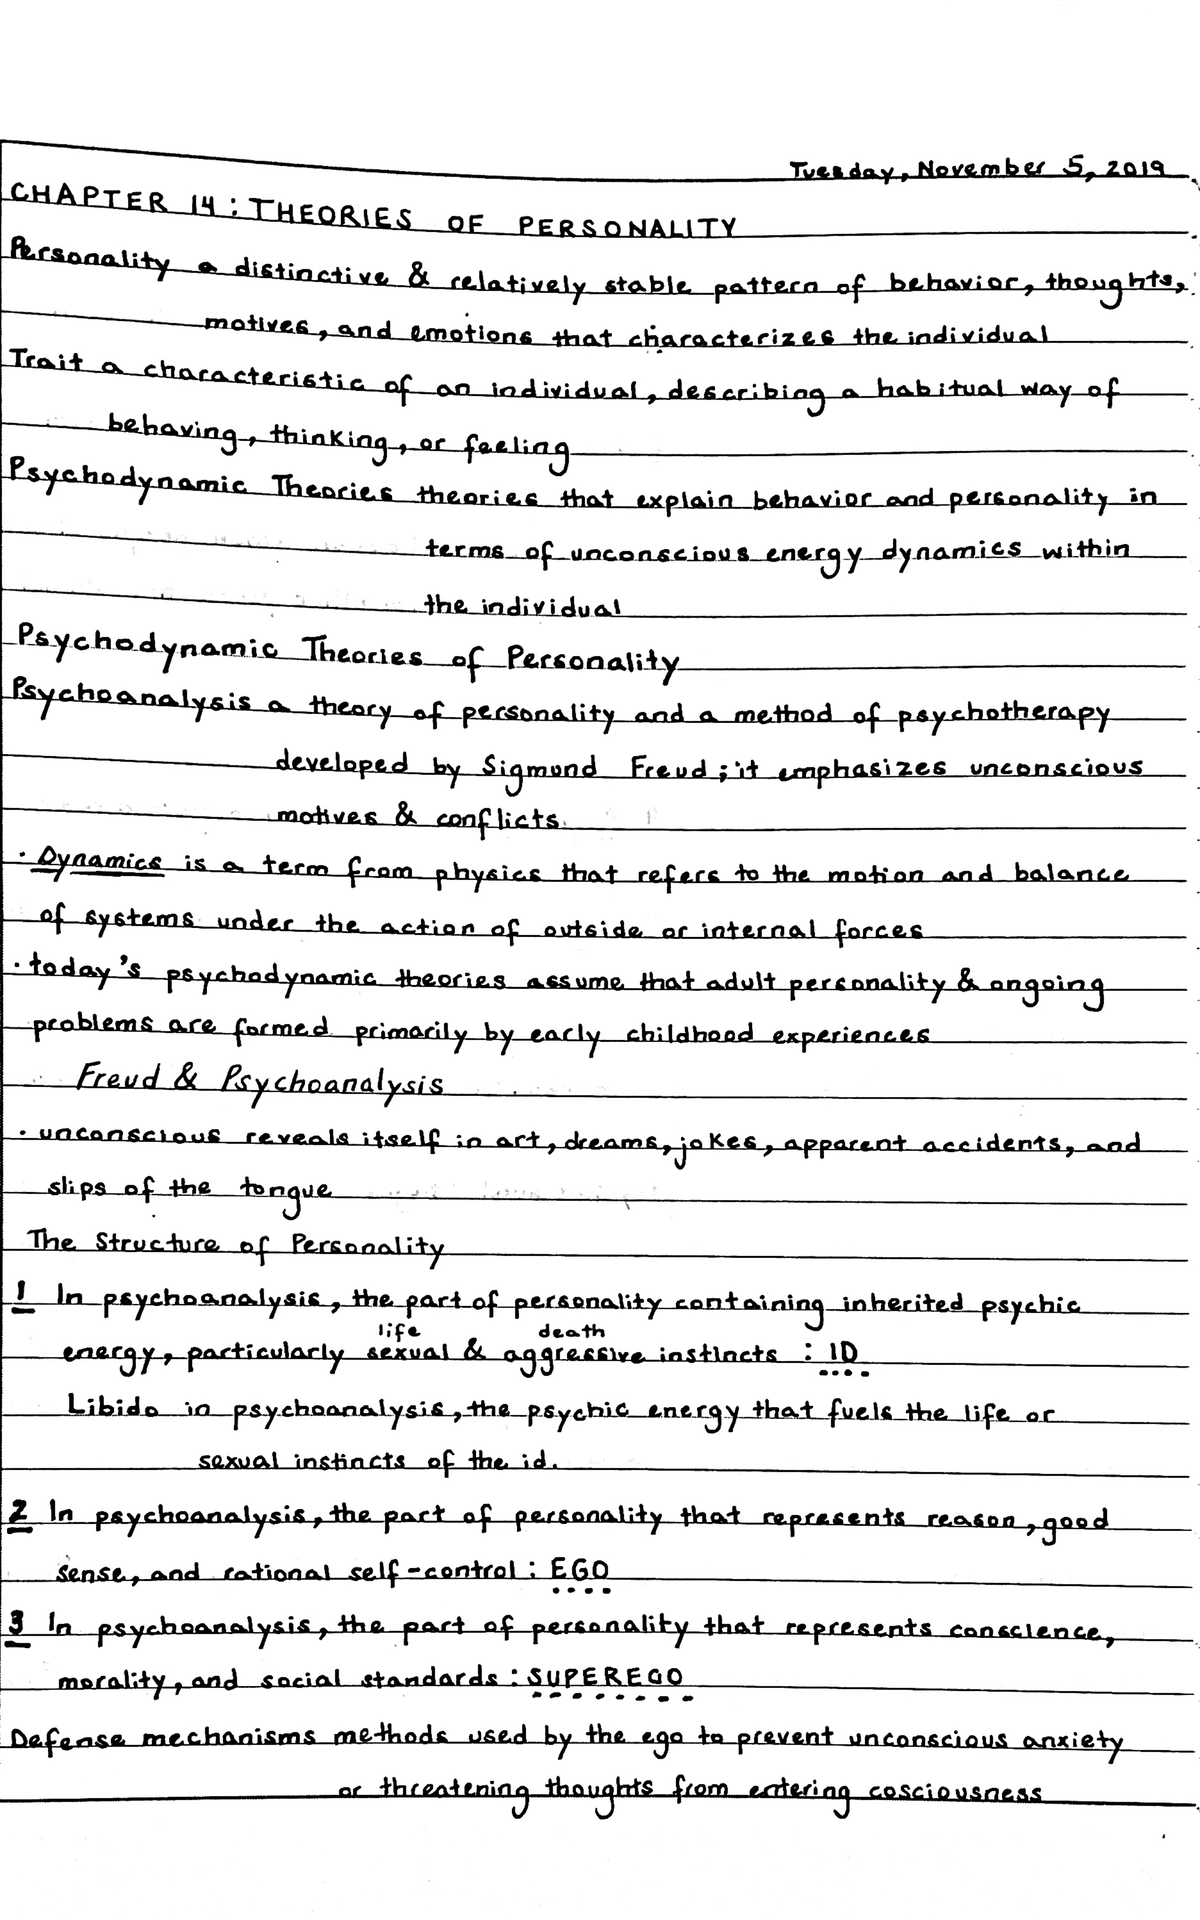 Tuesday, November 5, 2019
CHAPTER 14: THEORIES OF PERSONALITY
Personality a distinctive & relatively stable pattern of behavior, thoughts,
motives, and emotions that characterizes the individual
Trait a characteristic of an individual, describing a habitual way of
behaving, thinking, or feeling
Psychodynamic Theories theories that explain behavior and personality in
terms of unconscious energy dynamics within
the individual
Psychodynamic Theories of Personality
Psychoanalysis a theory of personality and a method of psychotherapy
developed by Sigmund Freud; it emphasizes unconscious
motives & conflicts.
· Dynamics is a term from physics that refers to the motion and balance
of systems under the action of outside or internal forces
· today's psychodynamic theories assume that adult personality & ongoing
problems are formed primarily by early childhood experiences
Freud & Psychoanalysis
· unconscious reveals itself in art, dreams, jokes, apparent accidents, and
slips of the tongue
The Structure of Personality
1 In psychoanalysis, the part of personality containing inherited psychic
life death
energy, particularly sexual & aggressive instincts : ID
Libido in psychoanalysis, the psychic energy that fuels the life or
sexual instincts of the id.
2 In psychoanalysis, the part of personality that represents reason, good
sense, and rational self-control : EGO
3 In psychoanalysis, the part of personality that represents conscience,
morality, and social standards : SUPEREGO
Defense mechanisms methods used by the ego to prevent unconscious anxiety
or threatening thoughts from entering cosciousness